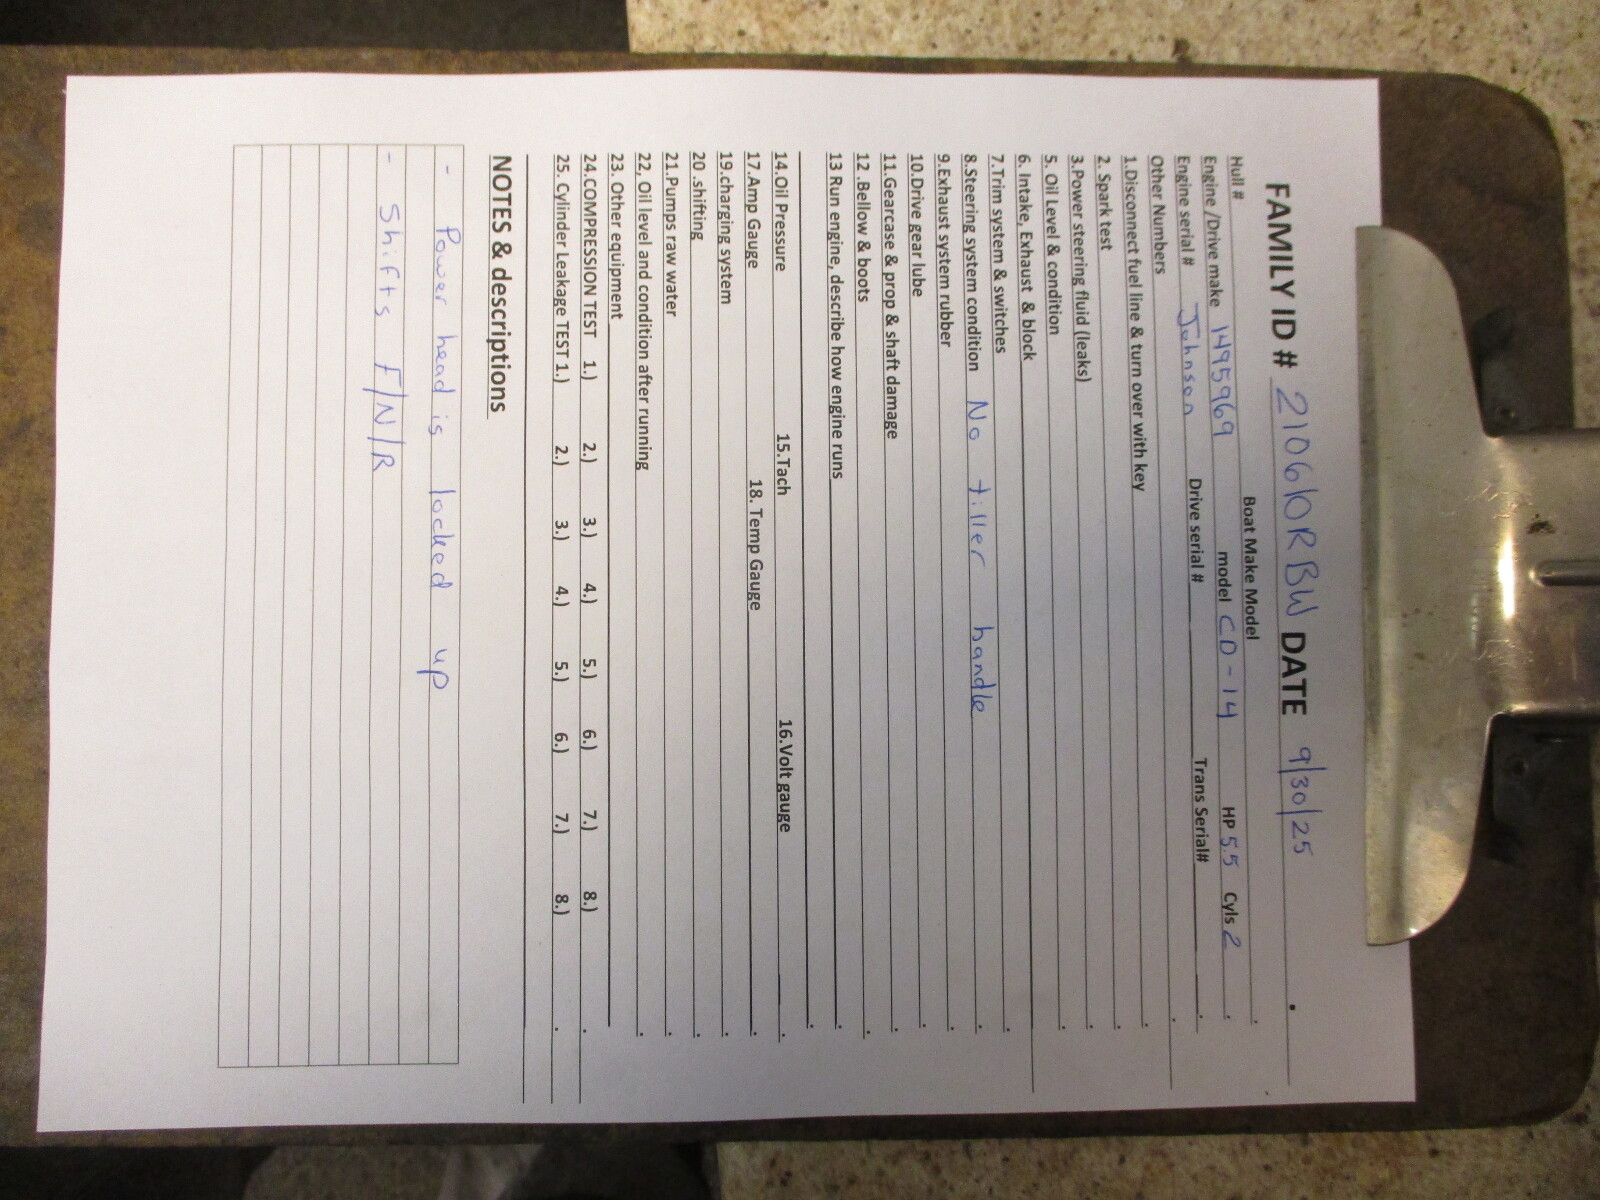 FAMILY ID # 210610RBW DATE 9/30/25
Hull # Boat Make Model
Engine /Drive make 1495969 model CD-14 HP 5.5 Cyls 2
Engine serial # Johnson Drive serial # Trans Serial#
Other Numbers
1.Disconnect fuel line & turn over with key
2. Spark test
3.Power steering fluid (leaks)
5. Oil Level & condition
6. Intake, Exhaust & block
7.Trim system & switches
8.Steering system condition No tiller handle
9.Exhaust system rubber
10.Drive gear lube
11.Gearcase & prop & shaft damage
12 .Bellow & boots
13 Run engine, describe how engine runs
14.Oil Pressure 15.Tach 16.Volt gauge
17.Amp Gauge 18. Temp Gauge
19.charging system
20 .shifting
21.Pumps raw water
22, Oil level and condition after running
23. Other equipment
24.COMPRESSION TEST 1.) 2.) 3.) 4.) 5.) 6.) 7.) 8.)
25. Cylinder Leakage TEST 1.) 2.) 3.) 4.) 5.) 6.) 7.) 8.)
NOTES & descriptions
- Power head is locked up
- Shifts F/N/R